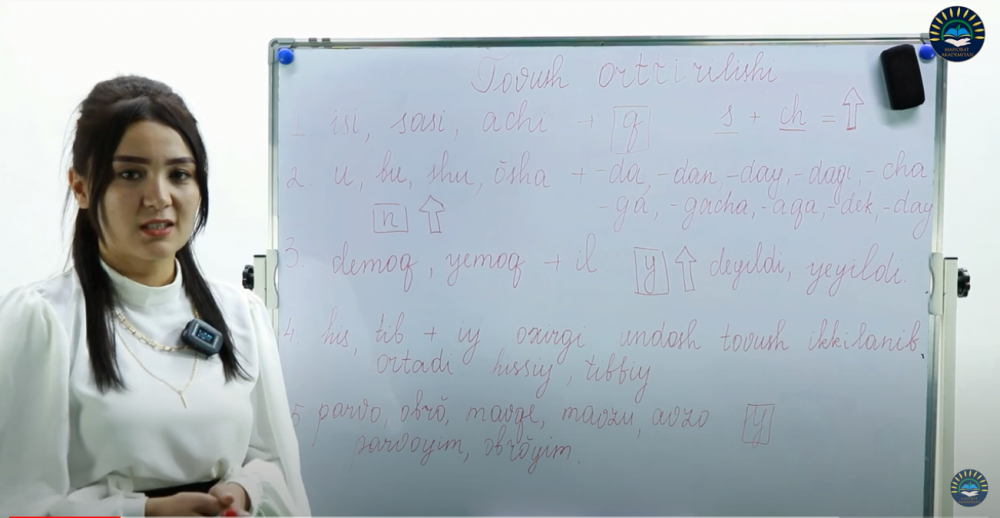 Tovush orttirilishi
1. isi, sasi, achi + q s + ch = ↑
2. u, bu, shu, o'sha + -da, -dan, -day, -dagi, -cha
n ↑ -ga, -gacha, -aqa, -dek, -day
3. demoq, yemoq + il y ↑ deyildi, yeyildi.
4. his, tib + iy oxirgi undosh tovush ikkilanib,
ortadi hissiy, tibbiy
5 parvo, obrŏ, mavqe, mavzu, avzo y
parvoyim, obrŏyim.
MAHORAT
AKADEMIYASI